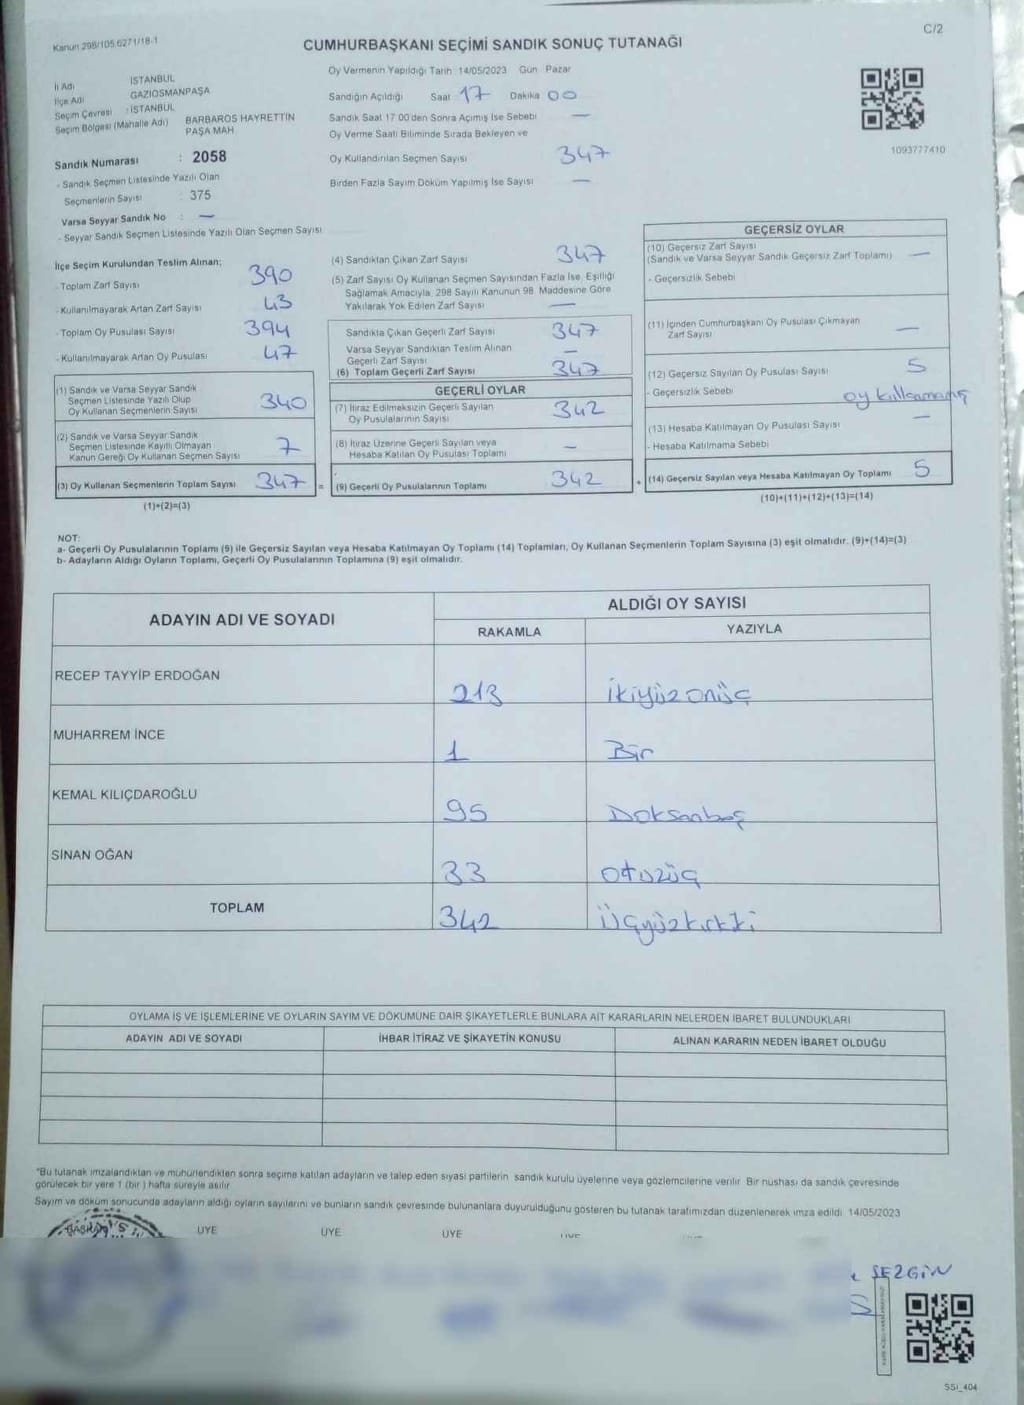 Kanun 298/105,6271/18-1
C/2
CUMHURBAŞKANI SEÇİMİ SANDIK SONUÇ TUTANAĞI
Oy Vermenin Yapıldığı Tarih 14/05/2023 Gün Pazar
İl Adı İSTANBUL
İlçe Adı GAZİOSMANPAŞA
Seçim Çevresi : İSTANBUL
Seçim Bölgesi (Mahalle Adı) BARBAROS HAYRETTİN PAŞA MAH.
Sandık Numarası : 2058
- Sandık Seçmen Listesinde Yazılı Olan
Seçmenlerin Sayısı : 375
Varsa Seyyar Sandık No : —
- Seyyar Sandık Seçmen Listesinde Yazılı Olan Seçmen Sayısı
Sandığın Açıldığı Saat 17 Dakika 00
Sandık Saat 17 00'den Sonra Açılmış İse Sebebi —
Oy Verme Saati Bitiminde Sırada Bekleyen ve
Oy Kullandırılan Seçmen Sayısı 347
Birden Fazla Sayım Döküm Yapılmış İse Sayısı —
1093777410
İlçe Seçim Kurulundan Teslim Alınan;
- Toplam Zarf Sayısı 390
- Kullanılmayarak Artan Zarf Sayısı 43
- Toplam Oy Pusulası Sayısı 394
- Kullanılmayarak Artan Oy Pusulası 47
(1) Sandık ve Varsa Seyyar Sandık
Seçmen Listesinde Yazılı Olup
Oy Kullanan Seçmenlerin Sayısı 340
(2) Sandık ve Varsa Seyyar Sandık
Seçmen Listesinde Kayıtlı Olmayan
Kanun Gereği Oy Kullanan Seçmen Sayısı 7
(3) Oy Kullanan Seçmenlerin Toplam Sayısı 347 =
(1)+(2)=(3)
(4) Sandıktan Çıkan Zarf Sayısı 347
(5) Zarf Sayısı Oy Kullanan Seçmen Sayısından Fazla İse, Eşitliği
Sağlamak Amacıyla, 298 Sayılı Kanunun 98. Maddesine Göre
Yakılarak Yok Edilen Zarf Sayısı —
Sandıkta Çıkan Geçerli Zarf Sayısı 347
Varsa Seyyar Sandıktan Teslim Alınan
Geçerli Zarf Sayısı —
(6) Toplam Geçerli Zarf Sayısı 347
GEÇERLİ OYLAR
(7) İtiraz Edilmeksizin Geçerli Sayılan
Oy Pusulalarının Sayısı 342
(8) İtiraz Üzerine Geçerli Sayılan veya
Hesaba Katılan Oy Pusulası Toplamı —
(9) Geçerli Oy Pusulalarının Toplamı 342 +
GEÇERSİZ OYLAR
(10) Geçersiz Zarf Sayısı
(Sandık ve Varsa Seyyar Sandık Geçersiz Zarf Toplamı) —
- Geçersizlik Sebebi
(11) İçinden Cumhurbaşkanı Oy Pusulası Çıkmayan
Zarf Sayısı —
(12) Geçersiz Sayılan Oy Pusulası Sayısı 5
- Geçersizlik Sebebi oy kullanmamış
(13) Hesaba Katılmayan Oy Pusulası Sayısı —
- Hesaba Katılmama Sebebi
(14) Geçersiz Sayılan veya Hesaba Katılmayan Oy Toplamı 5
(10)+(11)+(12)+(13)=(14)
NOT:
a- Geçerli Oy Pusulalarının Toplamı (9) ile Geçersiz Sayılan veya Hesaba Katılmayan Oy Toplamı (14) Toplamları, Oy Kullanan Seçmenlerin Toplam Sayısına (3) eşit olmalıdır. (9)+(14)=(3)
b- Adayların Aldığı Oyların Toplamı, Geçerli Oy Pusulalarının Toplamına (9) eşit olmalıdır.
ADAYIN ADI VE SOYADI
ALDIĞI OY SAYISI
RAKAMLA YAZIYLA
RECEP TAYYİP ERDOĞAN 213 İkiyüzonüç
MUHARREM İNCE 1 Bir
KEMAL KILIÇDAROĞLU 95 Doksanbeş
SİNAN OĞAN 33 otuzüç
TOPLAM 342 Üçyüzkırkiki
OYLAMA İŞ VE İŞLEMLERİNE VE OYLARIN SAYIM VE DÖKÜMÜNE DAİR ŞİKAYETLERLE BUNLARA AİT KARARLARIN NELERDEN İBARET BULUNDUKLARI
ADAYIN ADI VE SOYADI İHBAR İTİRAZ VE ŞİKAYETİN KONUSU ALINAN KARARIN NEDEN İBARET OLDUĞU
"Bu tutanak imzalandıktan ve mühürlendikten sonra seçime katılan adayların ve talep eden siyasi partilerin sandık kurulu üyelerine veya gözlemcilerine verilir. Bir nüshası da sandık çevresinde
görülecek bir yere 1 (bir) hafta süreyle asılır
Sayım ve döküm sonucunda adayların aldığı oyların sayılarını ve bunların sandık çevresinde bulunanlara duyurulduğunu gösteren bu tutanak tarafımızdan düzenlenerek imza edildi. 14/05/2023
BAŞKAN ÜYE ÜYE ÜYE
SEZGİN
SSİ_404